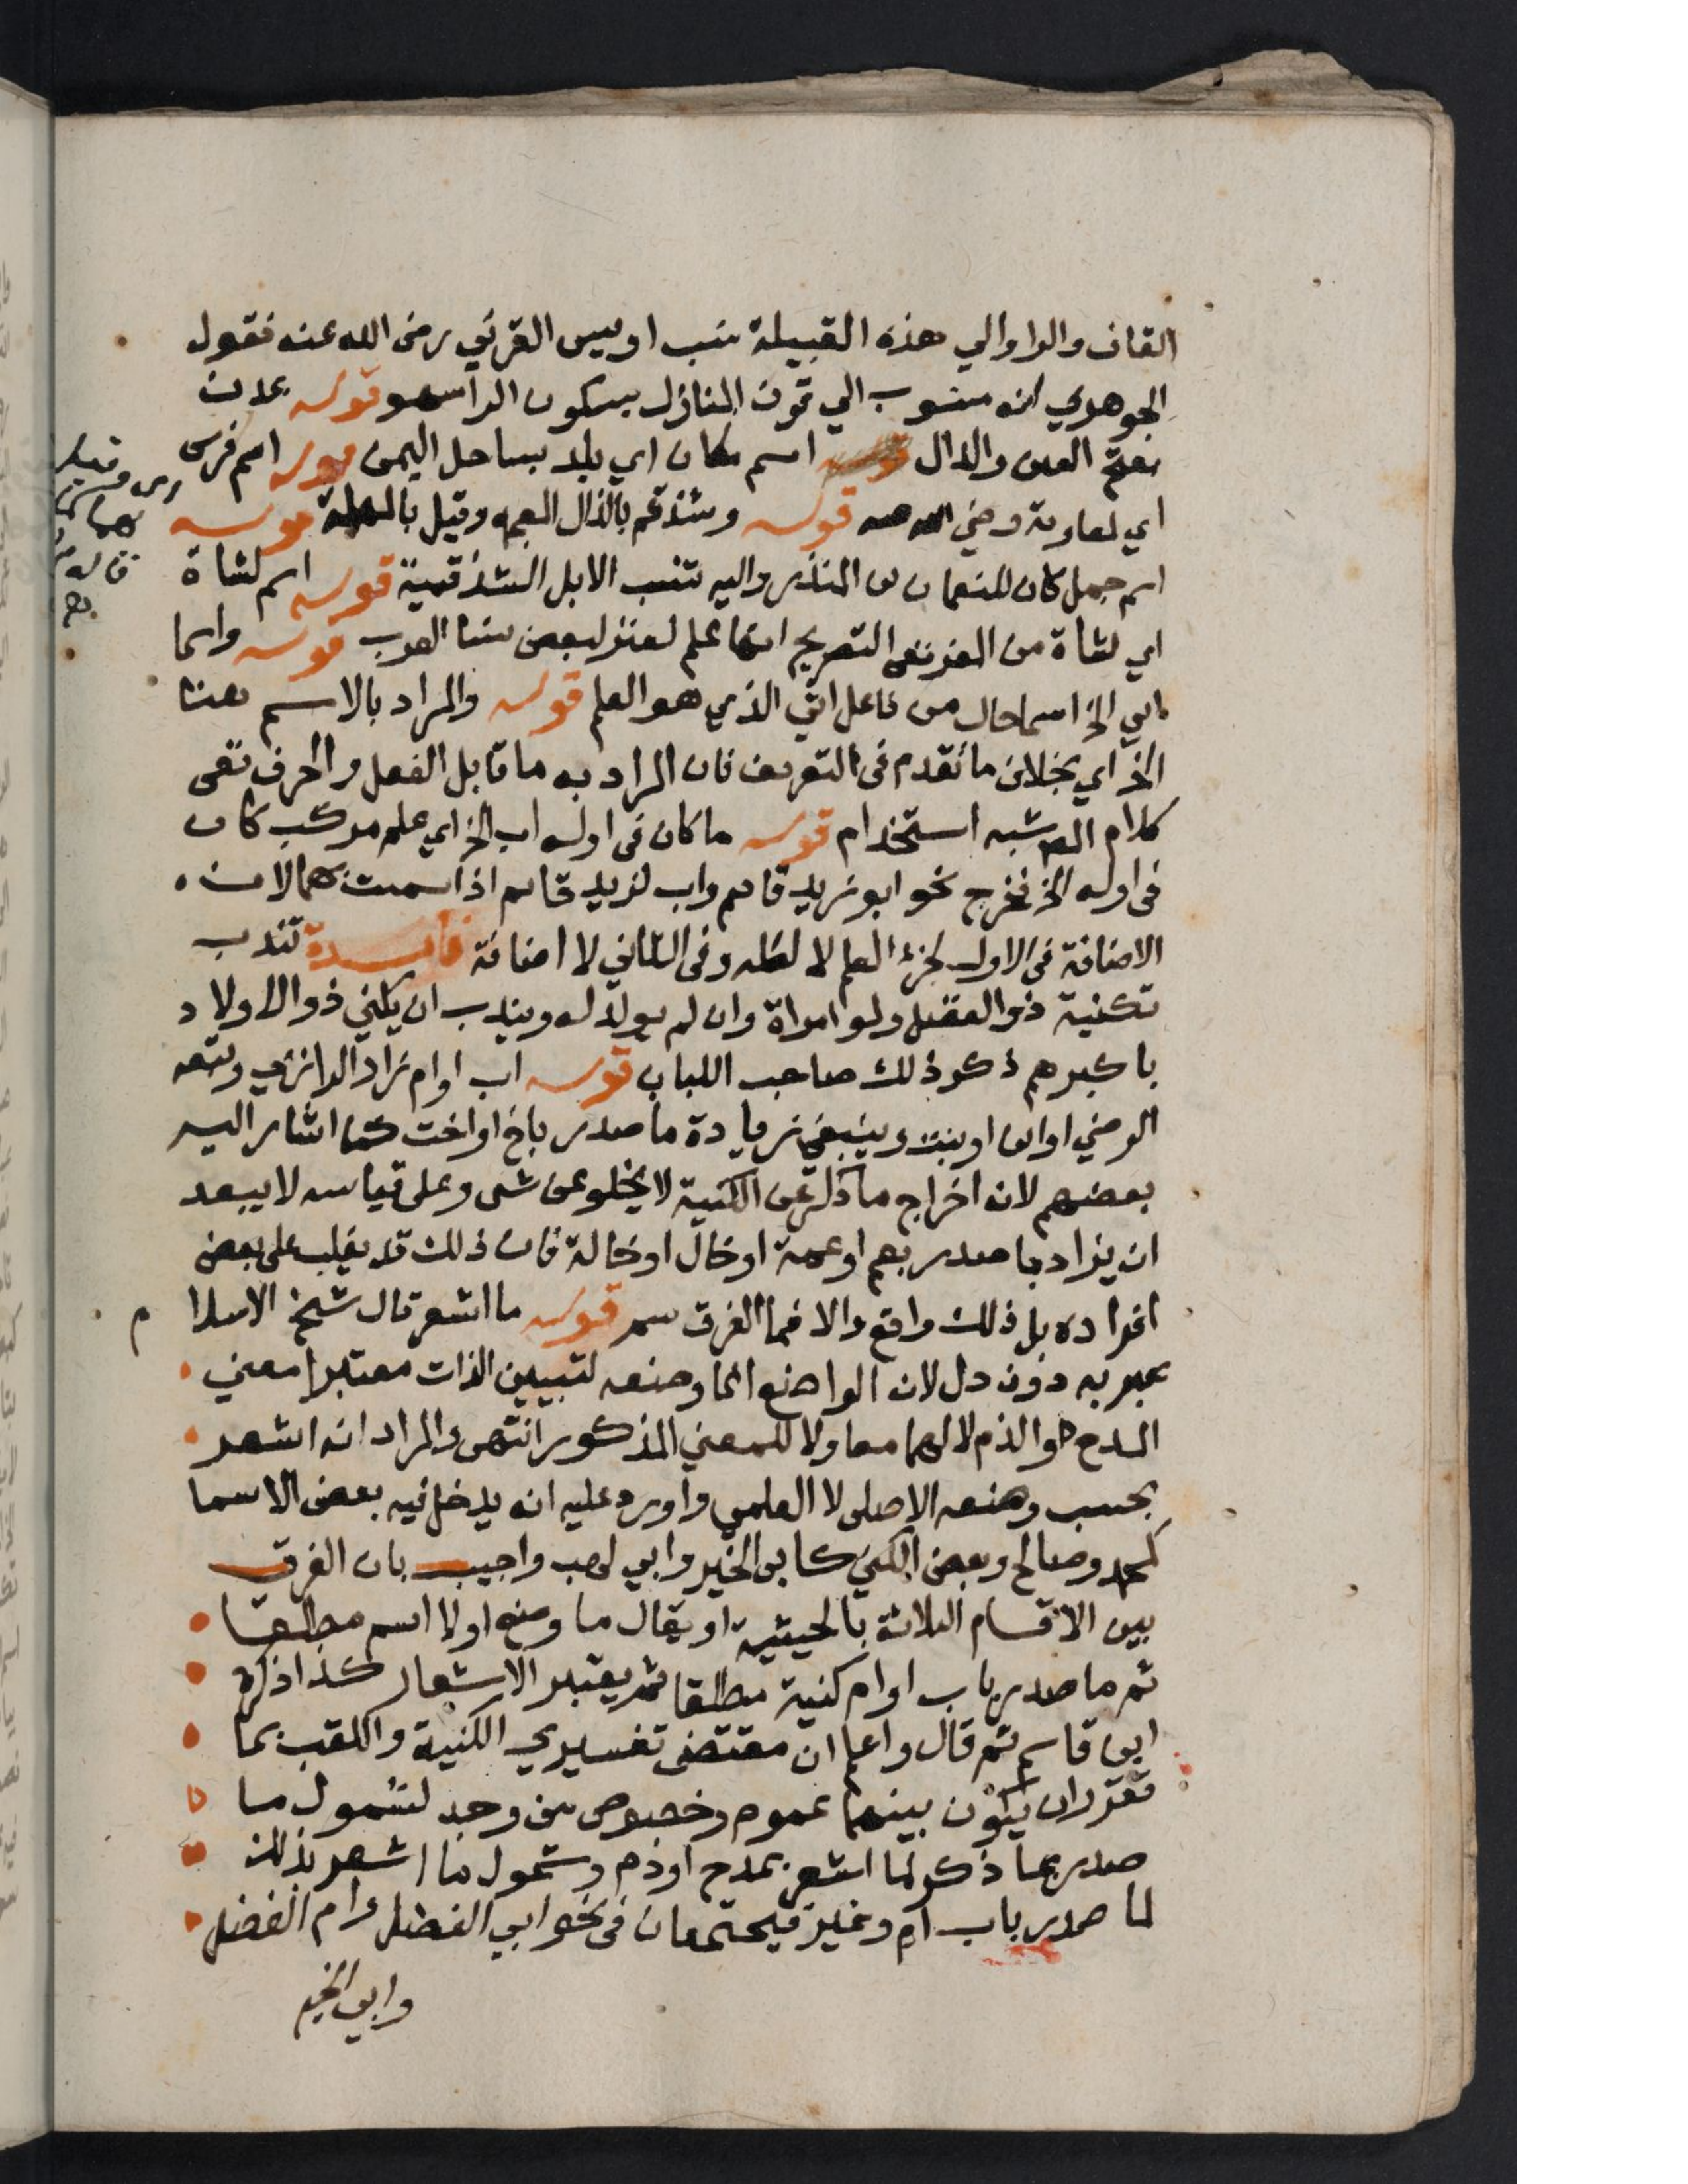 القاف والراوالي هذه القبيلة ينسب اويس القرني رضي الله عنه فقول
الجوهري انه منسوب الي قرن المنازل بسكون الرا سهو قوله عدن
بفتح العين والدال اسم مكان اي بلد بساحل اليمن قوله اسم فرس
اي لمعاوية رضي الله عنه قوله وشذقم بالذال المعجمه وقيل بالمهملة قوله
اسم جمل كان للنعمان بن المنذر واليه تنسب الابل الشذقمية قوله اسم لشاة
اي لشاة من المعز ففي التصريح انها علم لعنز لبعض نسا العرب قوله واسما
اتي الخ اسما حال من فاعل اتي الذي هو العلم قوله والمراد بالاسم هنا
الخ اي بخلاف ما تقدم في التعريف فان المراد به ما قابل الفعل والحرف ففي
كلام المص شبه استخدام قوله ما كان في اوله اب الخ اي علم مركب كان
في اوله الخ فخرج نحو ابو زيد قايم واب لزيد قايم اذا سميت بهما لان
الاضافة في الاول لجزء العلم لا لكله وفي الثاني لا اضافة فايدة تندب
تكنية ذوالفضل ولو امراة وان لم يولد له ويندب ان يكني ذوالاولاد
باكبرهم ذكر ذلك صاحب اللباب قوله اب اوام زاد الرازي وتبعه
الرضي اوابن اوبنت وينبغي زيادة ما صدر باخ اواخت كما اشار اليه
بعضهم لان اخراج ما ذكر عن الكنية لا يخلو عن شي وعلي قياسه لا يبعد
ان يزاد ما صدر بعم اوعمة اوخال اوخالة فان ذلك قد يغلب علي بعض
افراده بل ذلك واقع والا فما الفرق سم قوله ما اشعر قال شيخ الاسلام
عبر به دون دل لان الواضع انما وضعه لتعيين الذات معتبرا معني
المدح اوالذم لا لهما معا ولا للمعني المذكور انتهي والمراد انه اشعر
بحسب وضعه الاصلي لا العلمي واورد عليه انه يدخل فيه بعض الاسما
كمحمد وصالح وبعض الكني كابي الخير وابي لهب واجيب بان الفرق
بين الاقسام الثلاثة بالحيثية او يقال ما وضع اولا اسم مطلقا
ثم ما صدر باب اوام كنية مطلقا ثم يعتبر الاشعار كذا ذكره
ابن قاسم ثم قال واعلم ان مقتضي تفسيري الكنية واللقب بما
تقرر ان يكون بينهما عموم وخصوص من وجه لشمول ما
صدر بما ذكر لما اشعر بمدح اوذم وشمول ما اشعر بذلك
لما صدر باب ام وغيره فيجتمعان في نحو ابي الفضل وام الفضل
وابي الخير